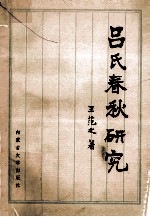 吕氏春秋研究
王范之著
内蒙古大学出版社